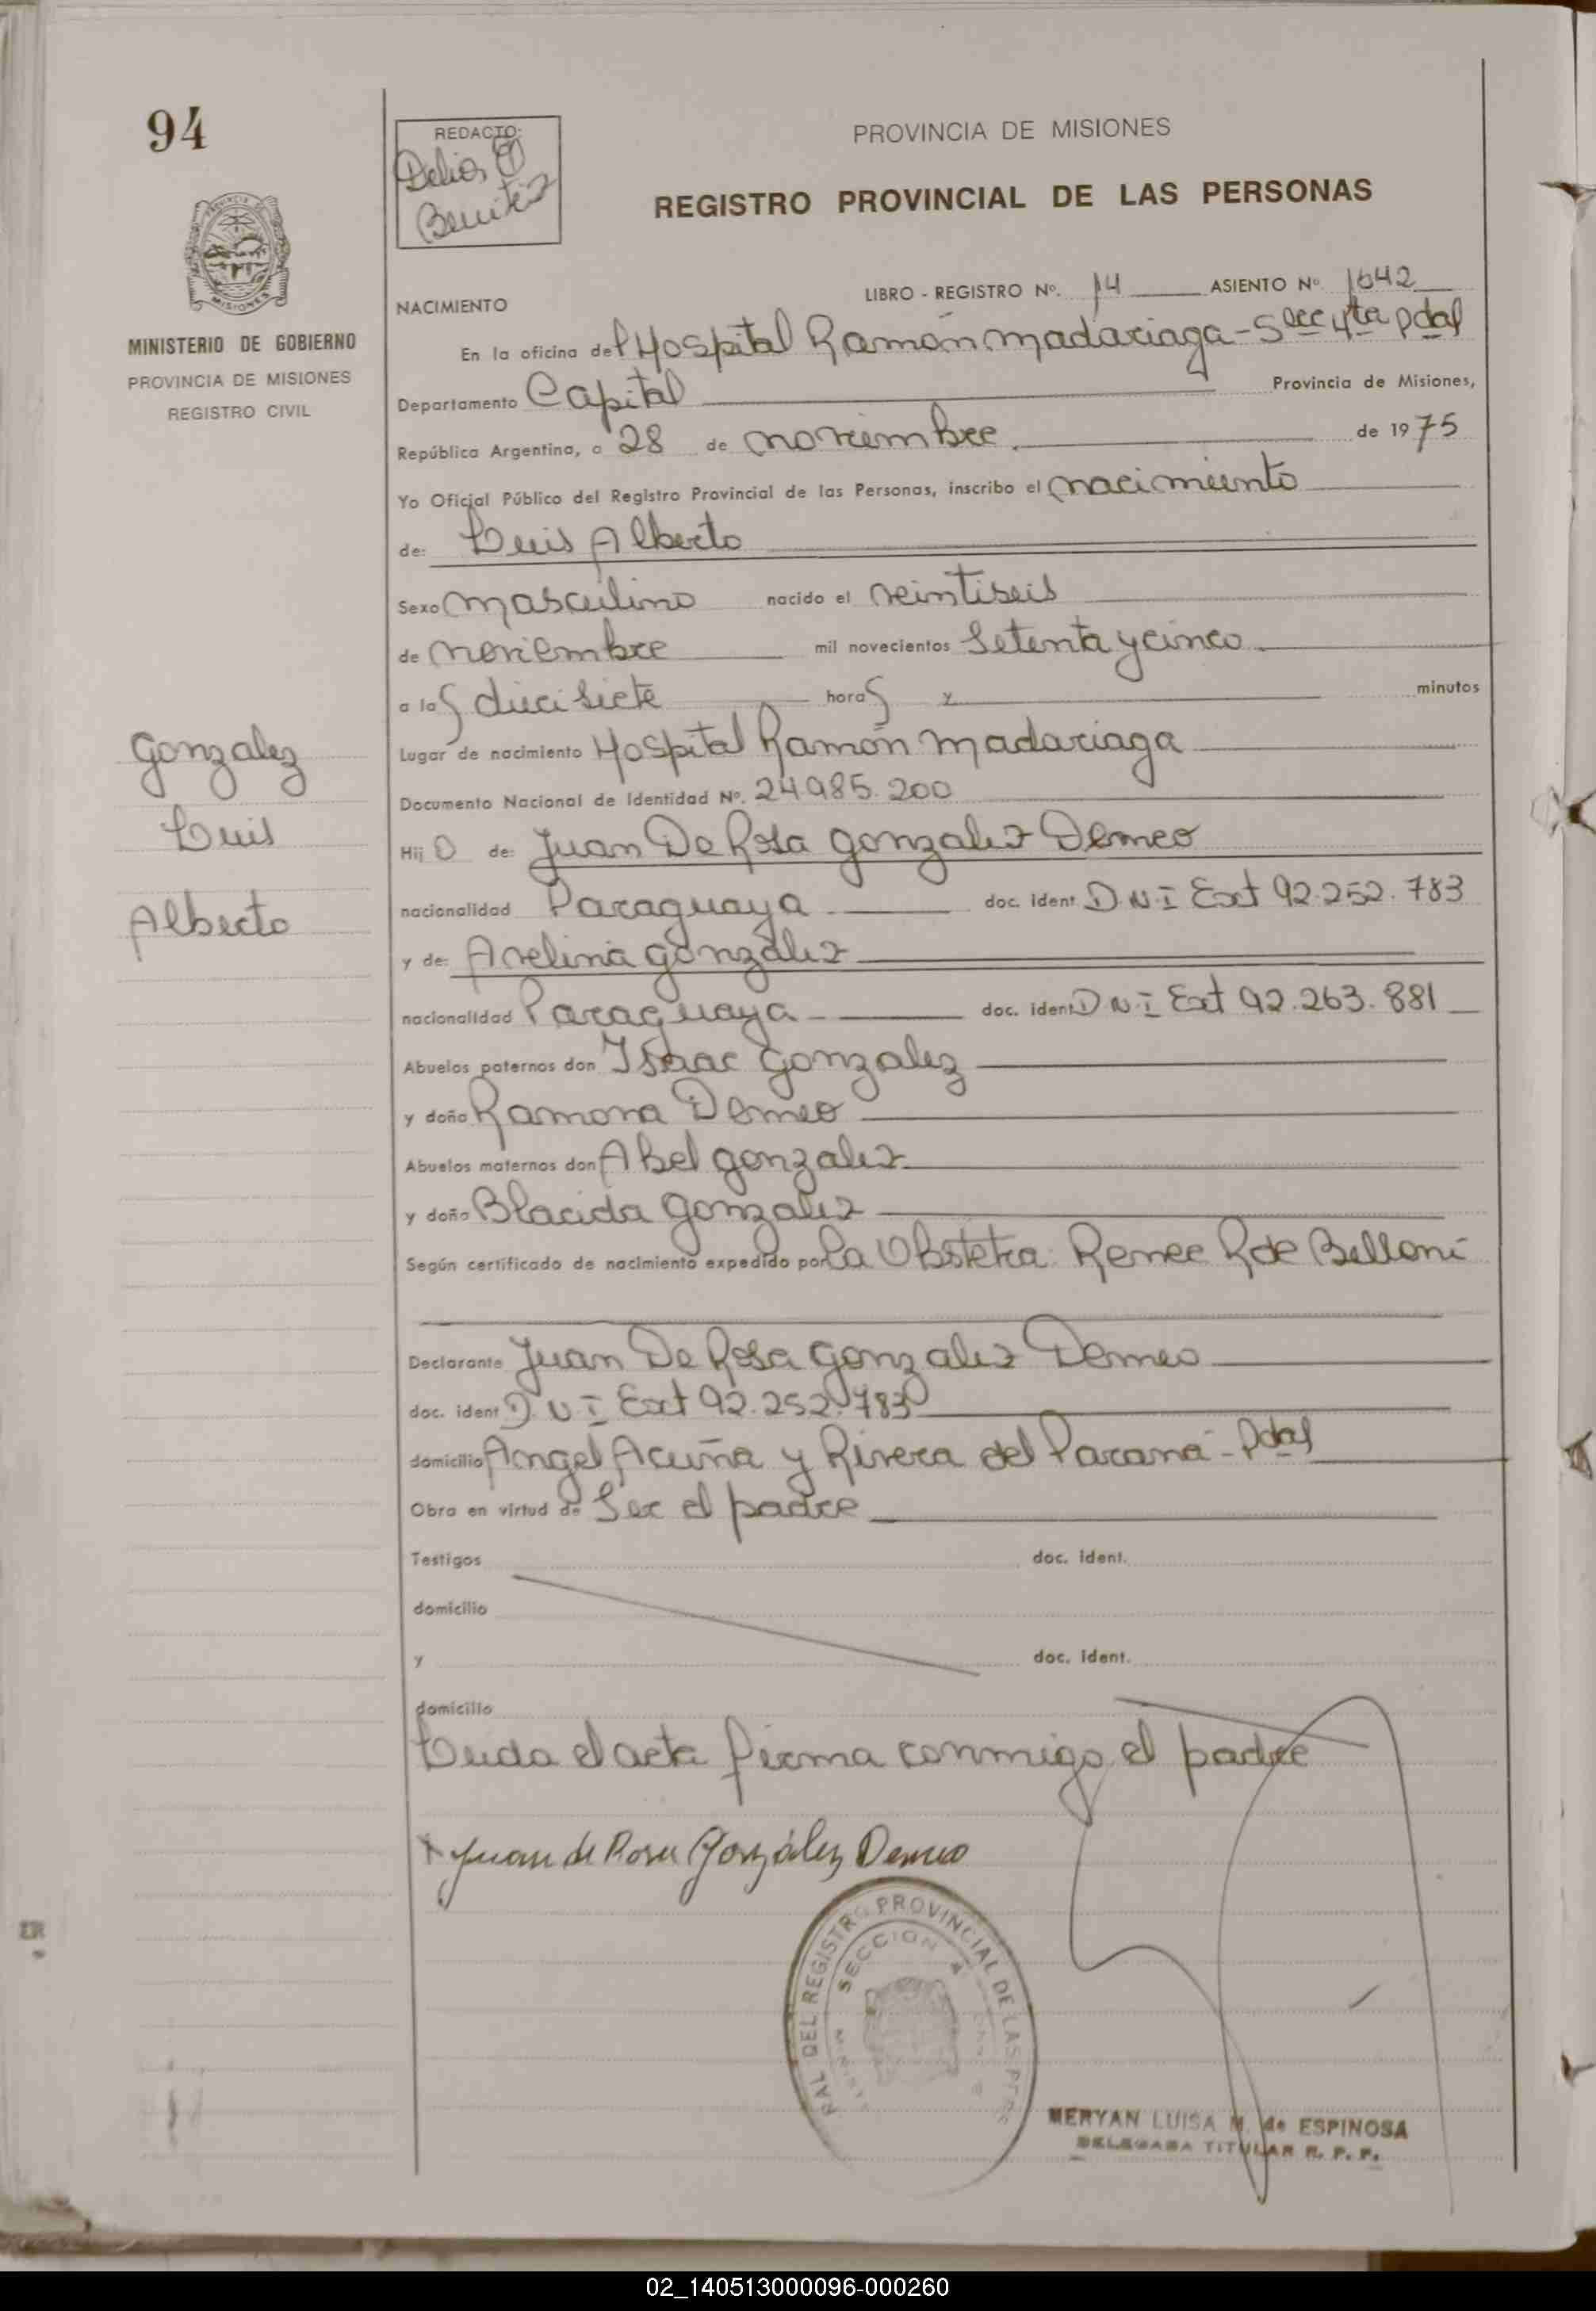 94
REDACTO:
Delia
Benitez
PROVINCIA DE MISIONES
REGISTRO PROVINCIAL DE LAS PERSONAS
MINISTERIO DE GOBIERNO
PROVINCIA DE MISIONES
REGISTRO CIVIL
LIBRO - REGISTRO Nº. 14 ASIENTO Nº 1642
NACIMIENTO
En la oficina del Hospital Ramón Madariaga - Secc 4ta Pdas
Departamento Capital Provincia de Misiones,
República Argentina, a 28 de noviembre de 1975
Yo Oficial Público del Registro Provincial de las Personas, inscribo el nacimiento
de: Luis Alberto
Sexo masculino nacido el veintiseis
de noviembre mil novecientos setenta y cinco
a las diecisiete horas y minutos
Lugar de nacimiento Hospital Ramón Madariaga
Documento Nacional de Identidad Nº. 24.985.200
Hijo de: Juan De Rosa Gonzalez Demeo
nacionalidad Paraguaya doc. ident D.N.I Ext 92.252.783
y de: Avelina Gonzalez
nacionalidad Paraguaya doc. ident D.N.I Ext 92.263.881
Abuelos paternos don Isaac Gonzalez
y doña Ramona Demeo
Abuelos maternos don Abel Gonzalez
y doña Blacida Gonzalez
Según certificado de nacimiento expedido por la Obstetra: Renee R de Belloni
Declarante Juan De Rosa Gonzalez Demeo
doc. ident D.N.I Ext 92.252.783
domicilio Angel Acuña y Rivera del Paraná - Pdas
Obra en virtud de Ser el padre
Testigos doc. ident.
domicilio
y doc. ident.
domicilio
Leida el acta firma conmigo el padre
Gonzalez
Luis
Alberto
x Juan de Rosa González Demeo
REGISTRO PROVINCIAL DE LAS
SECCION
MERYAN LUISA M. de ESPINOSA
DELEGADA TITULAR R. P. P.
02_140513000096-000260